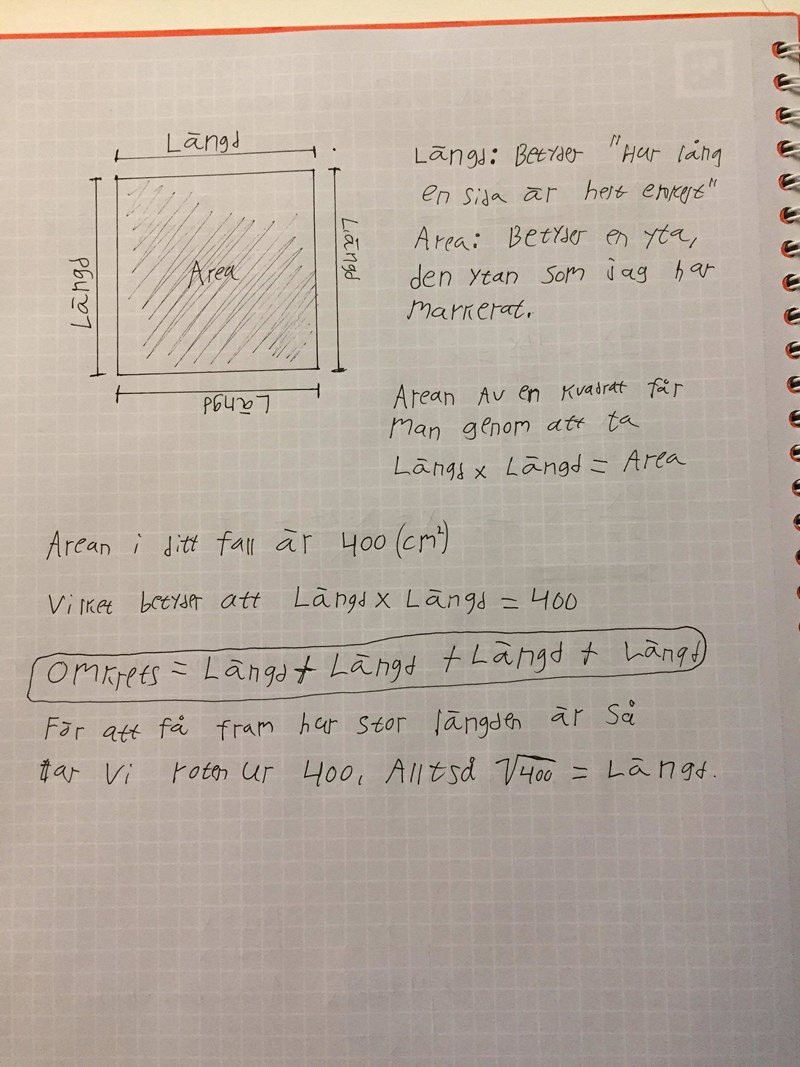 Längd
Längd
Area
Längd
Längd
Längd: Betyder "Hur lång
en sida är helt enkelt"
Area: Betyder en yta,
den ytan som jag har
markerat.
Arean av en kvadrat får
man genom att ta
Längd x Längd = Area
Arean i ditt fall är 400 (cm²)
Vilket betyder att Längd x Längd = 400
Omkrets = Längd + Längd + Längd + Längd
För att få fram hur stor längden är så
tar vi roten ur 400, Alltså √400 = Längd.